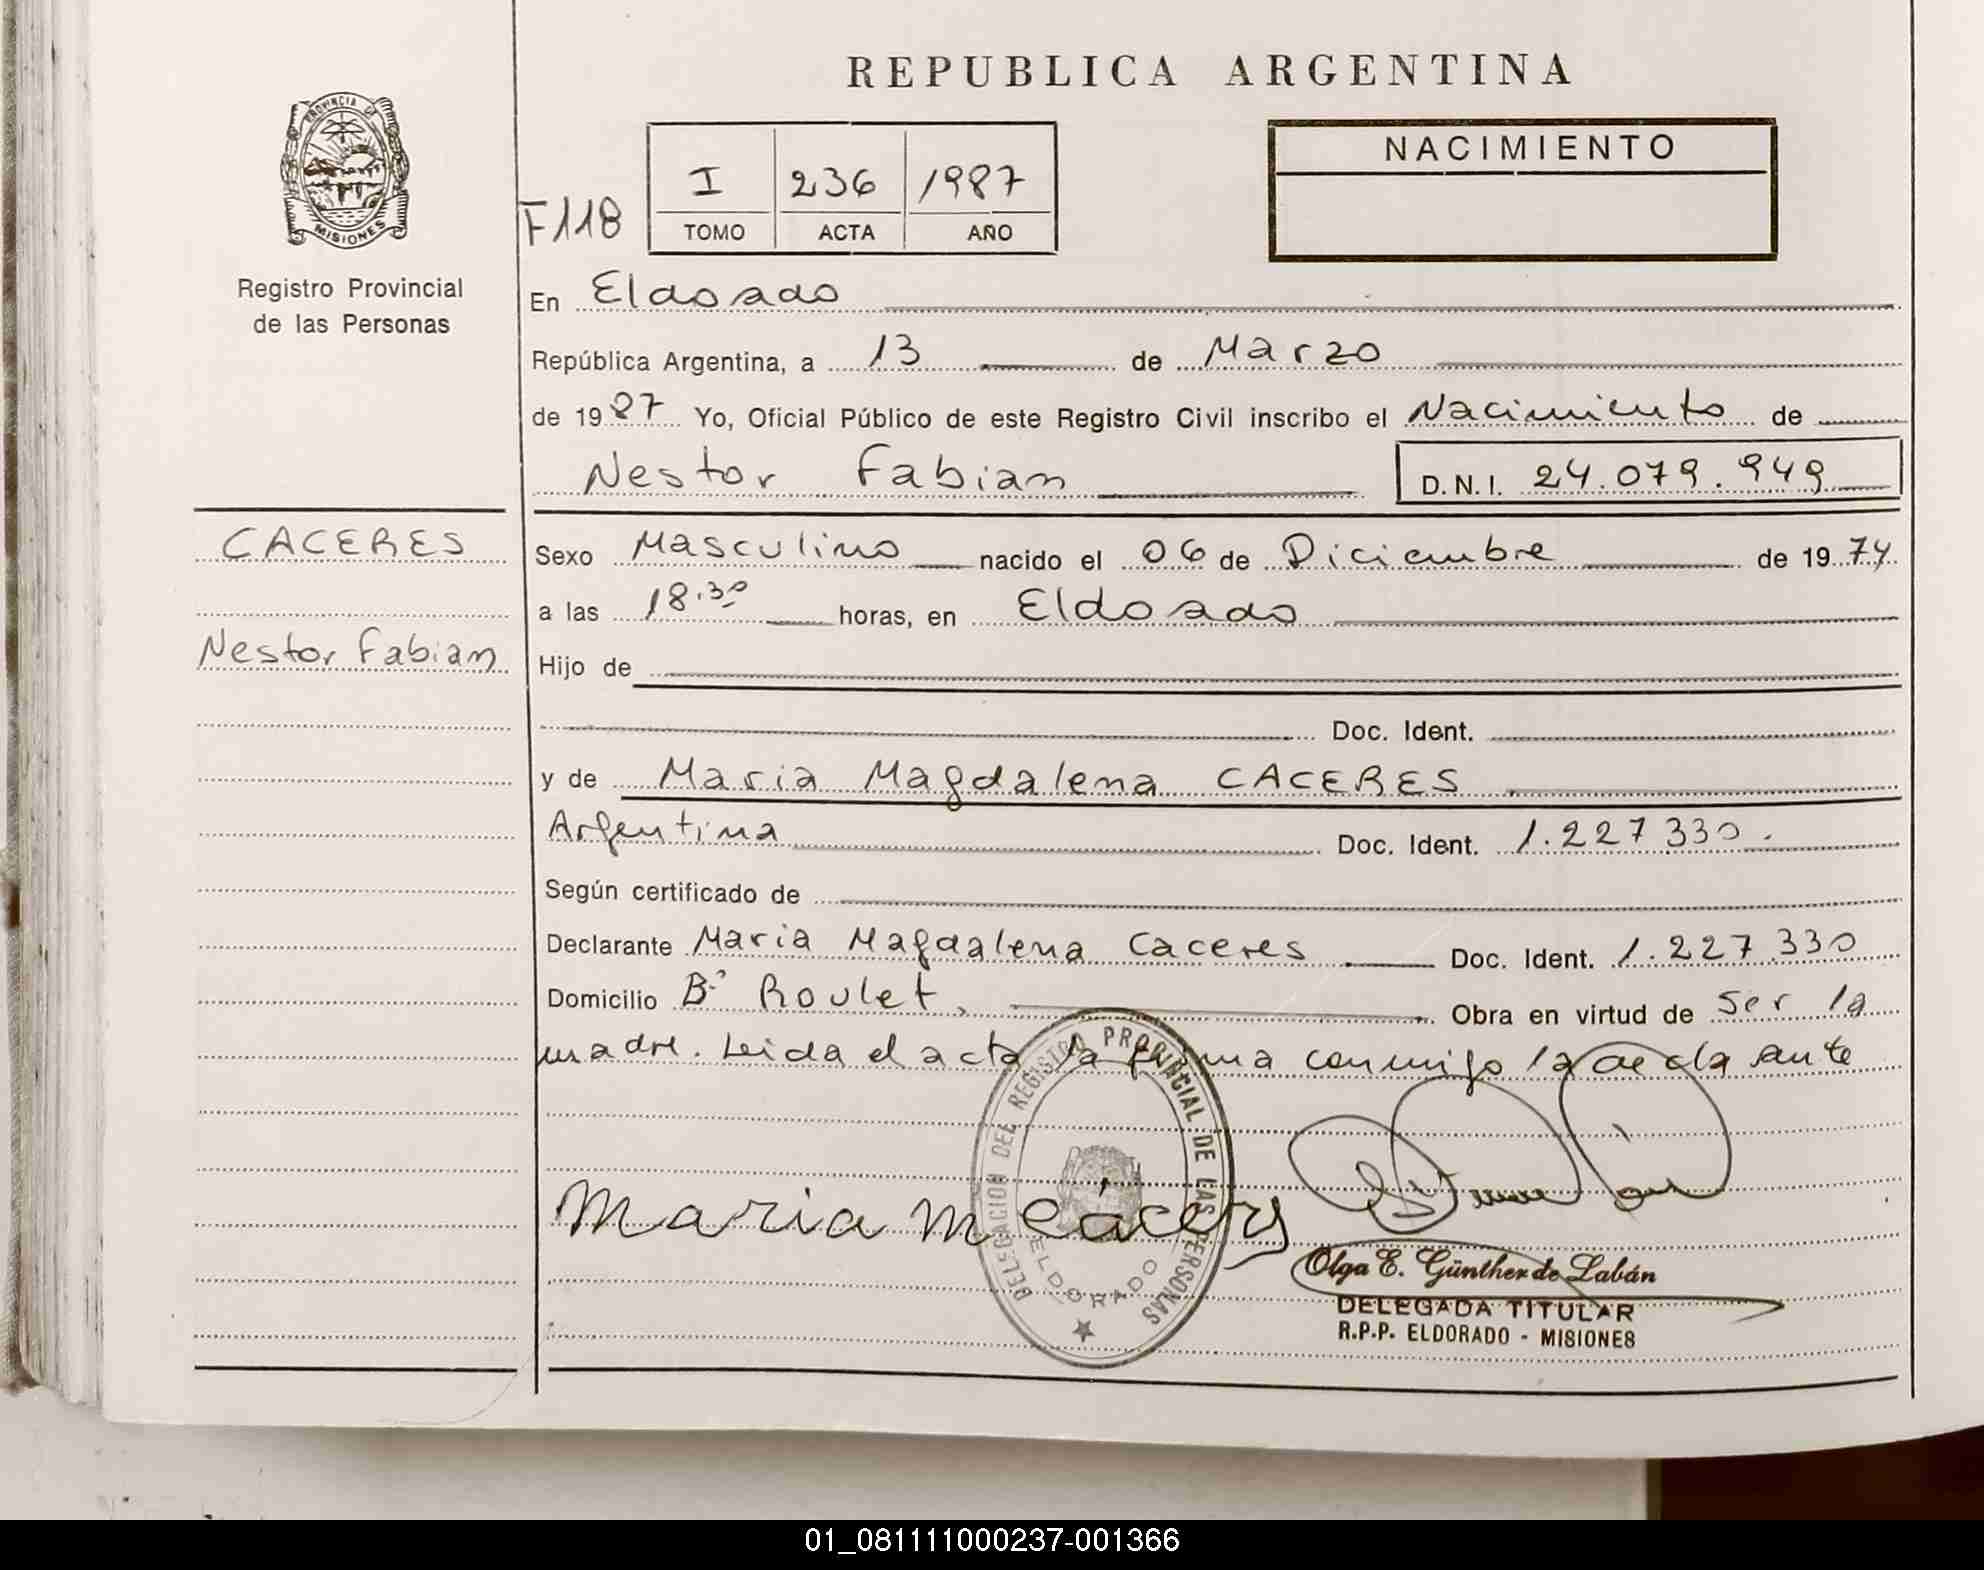 REPUBLICA ARGENTINA
PROVINCIA DE
MISIONES
Registro Provincial
de las Personas
F118
I 236 1987
TOMO ACTA AÑO
NACIMIENTO
En Eldorado
República Argentina, a 13 de Marzo
de 1987 Yo, Oficial Público de este Registro Civil inscribo el Nacimiento de
Nestor Fabian D.N.I. 24.079.949
CACERES
Nestor Fabian
Sexo Masculino nacido el 06 de Diciembre de 1974
a las 18.30 horas, en Eldorado
Hijo de
Doc. Ident.
y de Maria Magdalena CACERES
Argentina Doc. Ident. 1.227.330.
Según certificado de
Declarante Maria Magdalena Caceres Doc. Ident. 1.227.330
Domicilio Bº Roulet, Obra en virtud de Ser la
madre. Leida el acta la firma conmigo la declarante
DELEGACION DEL REGISTRO PROVINCIAL DE LAS PERSONAS
ELDORADO
Maria M Cáceres
Olga E. Günther de Labán
DELEGADA TITULAR
R.P.P. ELDORADO - MISIONES
01_081111000237-001366